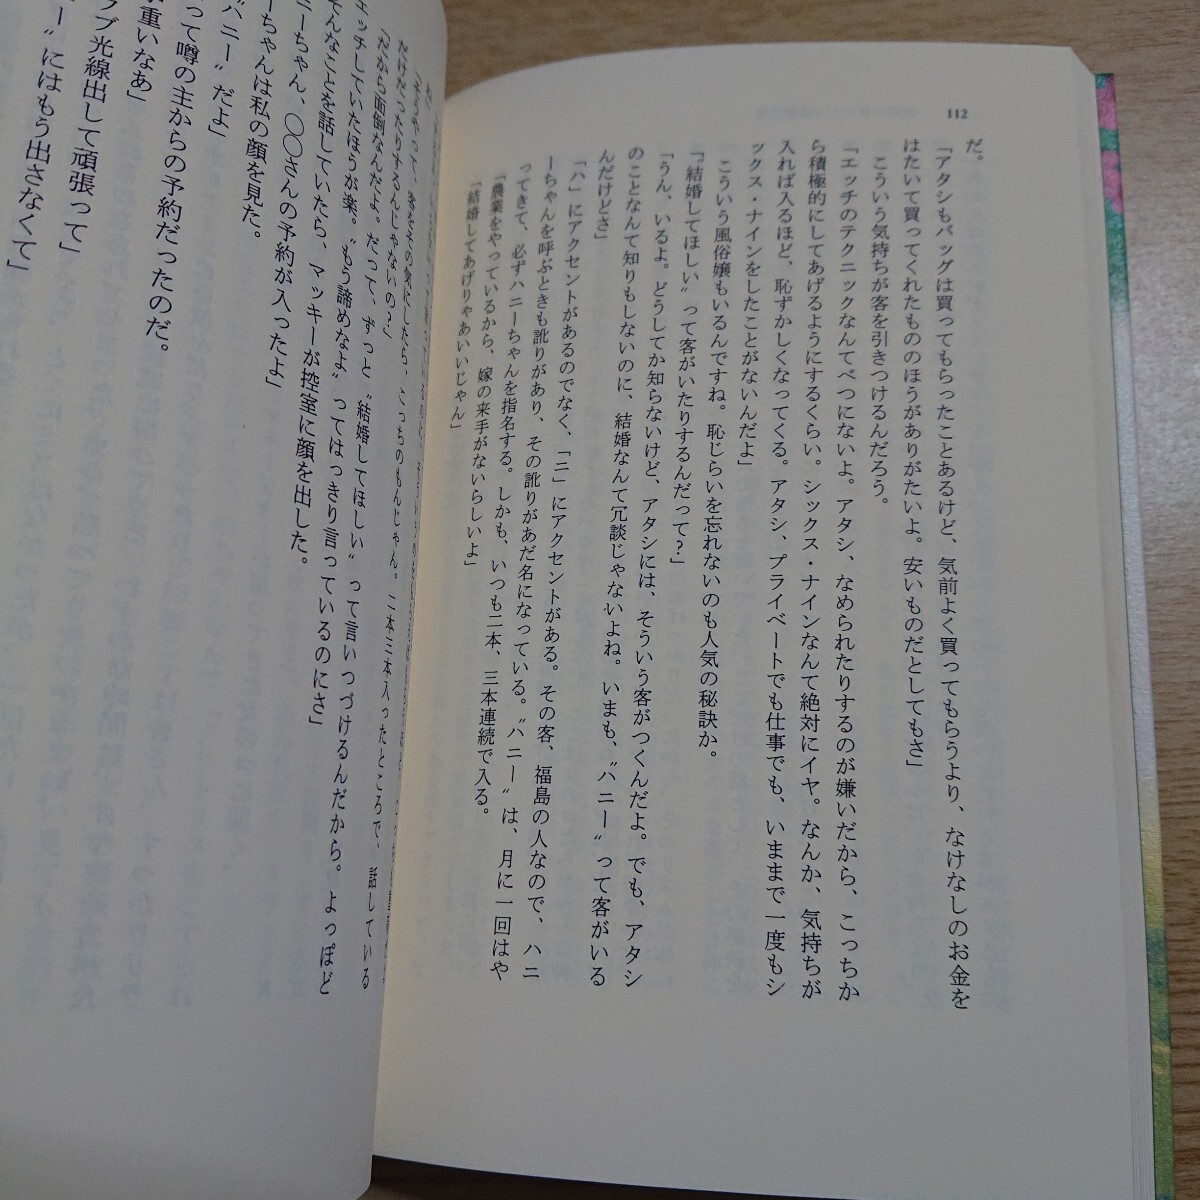 112
だ。
「アタシもバッグは買ってもらったことあるけど、気前よく買ってもらうより、なけなしのお金を
はたいて買ってくれたもののほうがありがたいよ。安いものだとしてもさ」
こういう気持ちが客を引きつけるんだろう。
「エッチのテクニックなんてべつにないよ。アタシ、なめられたりするのが嫌いだから、こっちか
ら積極的にしてあげるようにするくらい。シックス・ナインなんて絶対にイヤ。なんか、気持ちが
入れば入るほど、恥ずかしくなってくる。アタシ、プライベートでも仕事でも、いままで一度もシ
ックス・ナインをしたことがないんだよ」
こういう風俗嬢もいるんですね。恥じらいを忘れないのも人気の秘訣か。
「〝結婚してほしい〟って客がいたりするんだって?」
「うん、いるよ。どうしてか知らないけど、アタシには、そういう客がつくんだよ。でも、アタシ
のことなんて知りもしないのに、結婚なんて冗談じゃないよね。いまも、〝ハニー〟って客がいる
んだけどさ」
「ハ」にアクセントがあるのでなく、「ニ」にアクセントがある。その客、福島の人なので、ハニ
ーちゃんを呼ぶときも訛りがあり、その訛りがあだ名になっている。〝ハニー〟は、月に一回はや
ってきて、必ずハニーちゃんを指名する。しかも、いつも二本、三本連続で入る。
「農業をやっているから、嫁の来手がないらしいよ」
「結婚してあげりゃあいいじゃん」
「そうやって、客をその気にしたら、こっちのもんじゃん。二本三本入ったところで、話している
だけだったりするんじゃないの?」
「だから面倒なんだよ。だって、ずっと〝結婚してほしい〟って言いつづけるんだから。よっぽど
エッチしていたほうが楽。〝もう諦めなよ〟ってはっきり言っているのにさ」
そんなことを話していたら、マッキーが控室に顔を出した。
ニーちゃん、〇〇さんの予約が入ったよ」
ーちゃんは私の顔を見た。
〝ハニー〟だよ」
って噂の主からの予約だったのだ。
重いなあ」
ブ光線出して頑張って」
ー〟にはもう出さなくて」